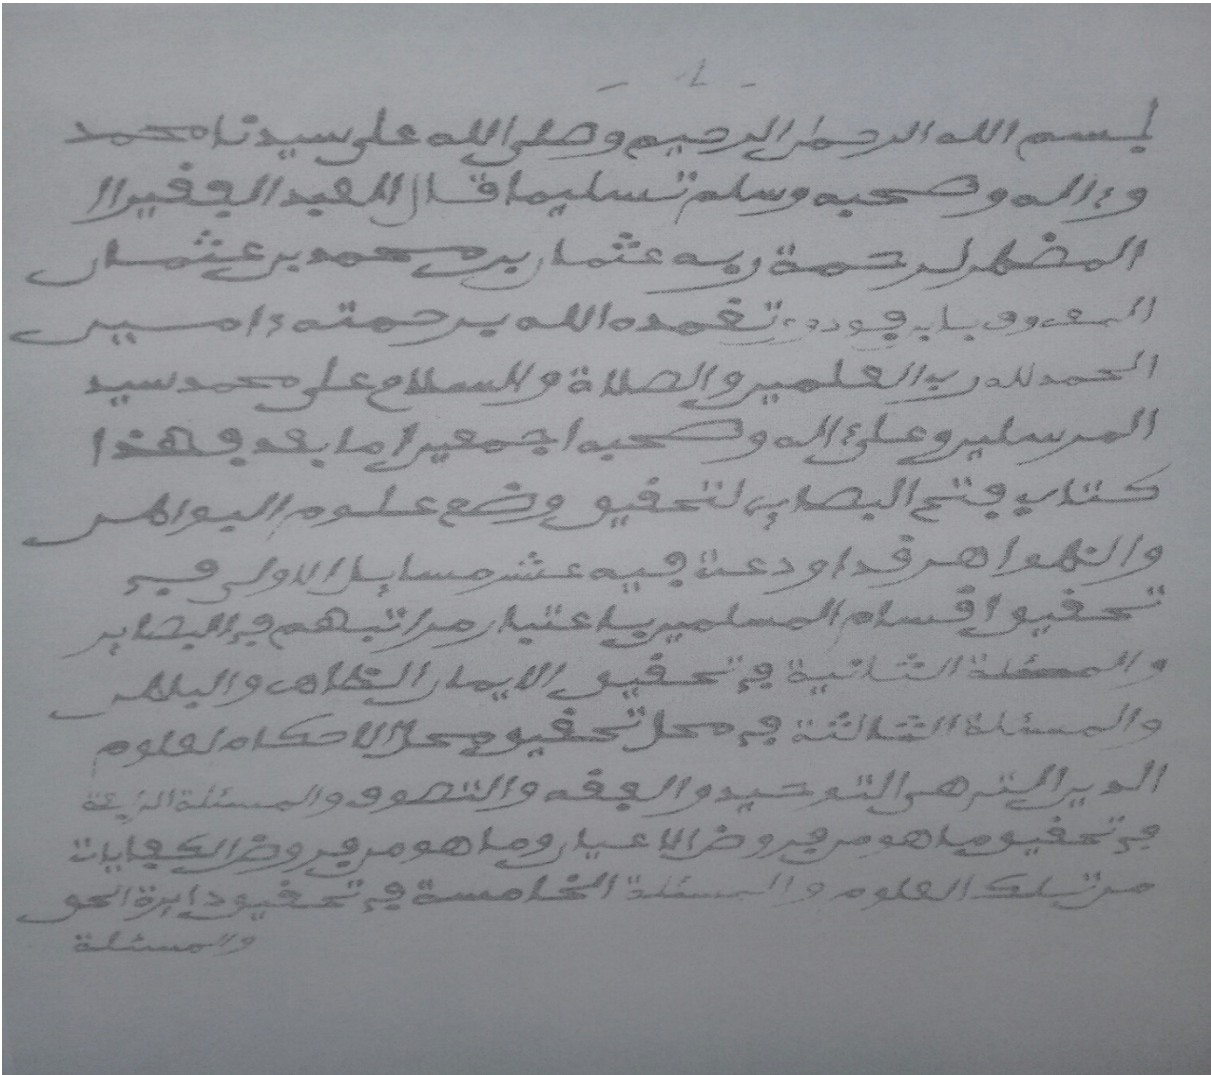 - 1 -
بسم الله الرحمن الرحيم وصلى الله على سيدنا محمد
وءاله وصحبه وسلم تسليما قال العبد الفقير ال
المضطر لرحمة ربه عثمان بن محمد بن عثمان
المعروف بابن فودوء تغمده الله برحمته ءامين
الحمد لله رب العلمين والصلاة والسلام على محمد سيد
المرسلين وعلى ءاله وصحبه اجمعين اما بعد فهذا
كتاب فتح البصاير لتحقيق وضع علوم البواطن
والظواهر قد اودعت فيه عشر مسايل الاولى في
تحقيق اقسام المسلمين باعتبار مراتبهم في البصاير
والمسئلة الثانية في تحقيق الايمان الظاهر والباطن
والمسئلة الثالثة في محل تحقيق محل الاحكام لعلوم
الدين التي هي التوحيد والفقه والتصوف والمسئلة الرابعة
في تحقيق ما هو من فروض الاعيان وما هو من فروض الكفايات
من تلك العلوم والمسئلة الخامسة في تحقيق دايرة الحق
والمسئلة